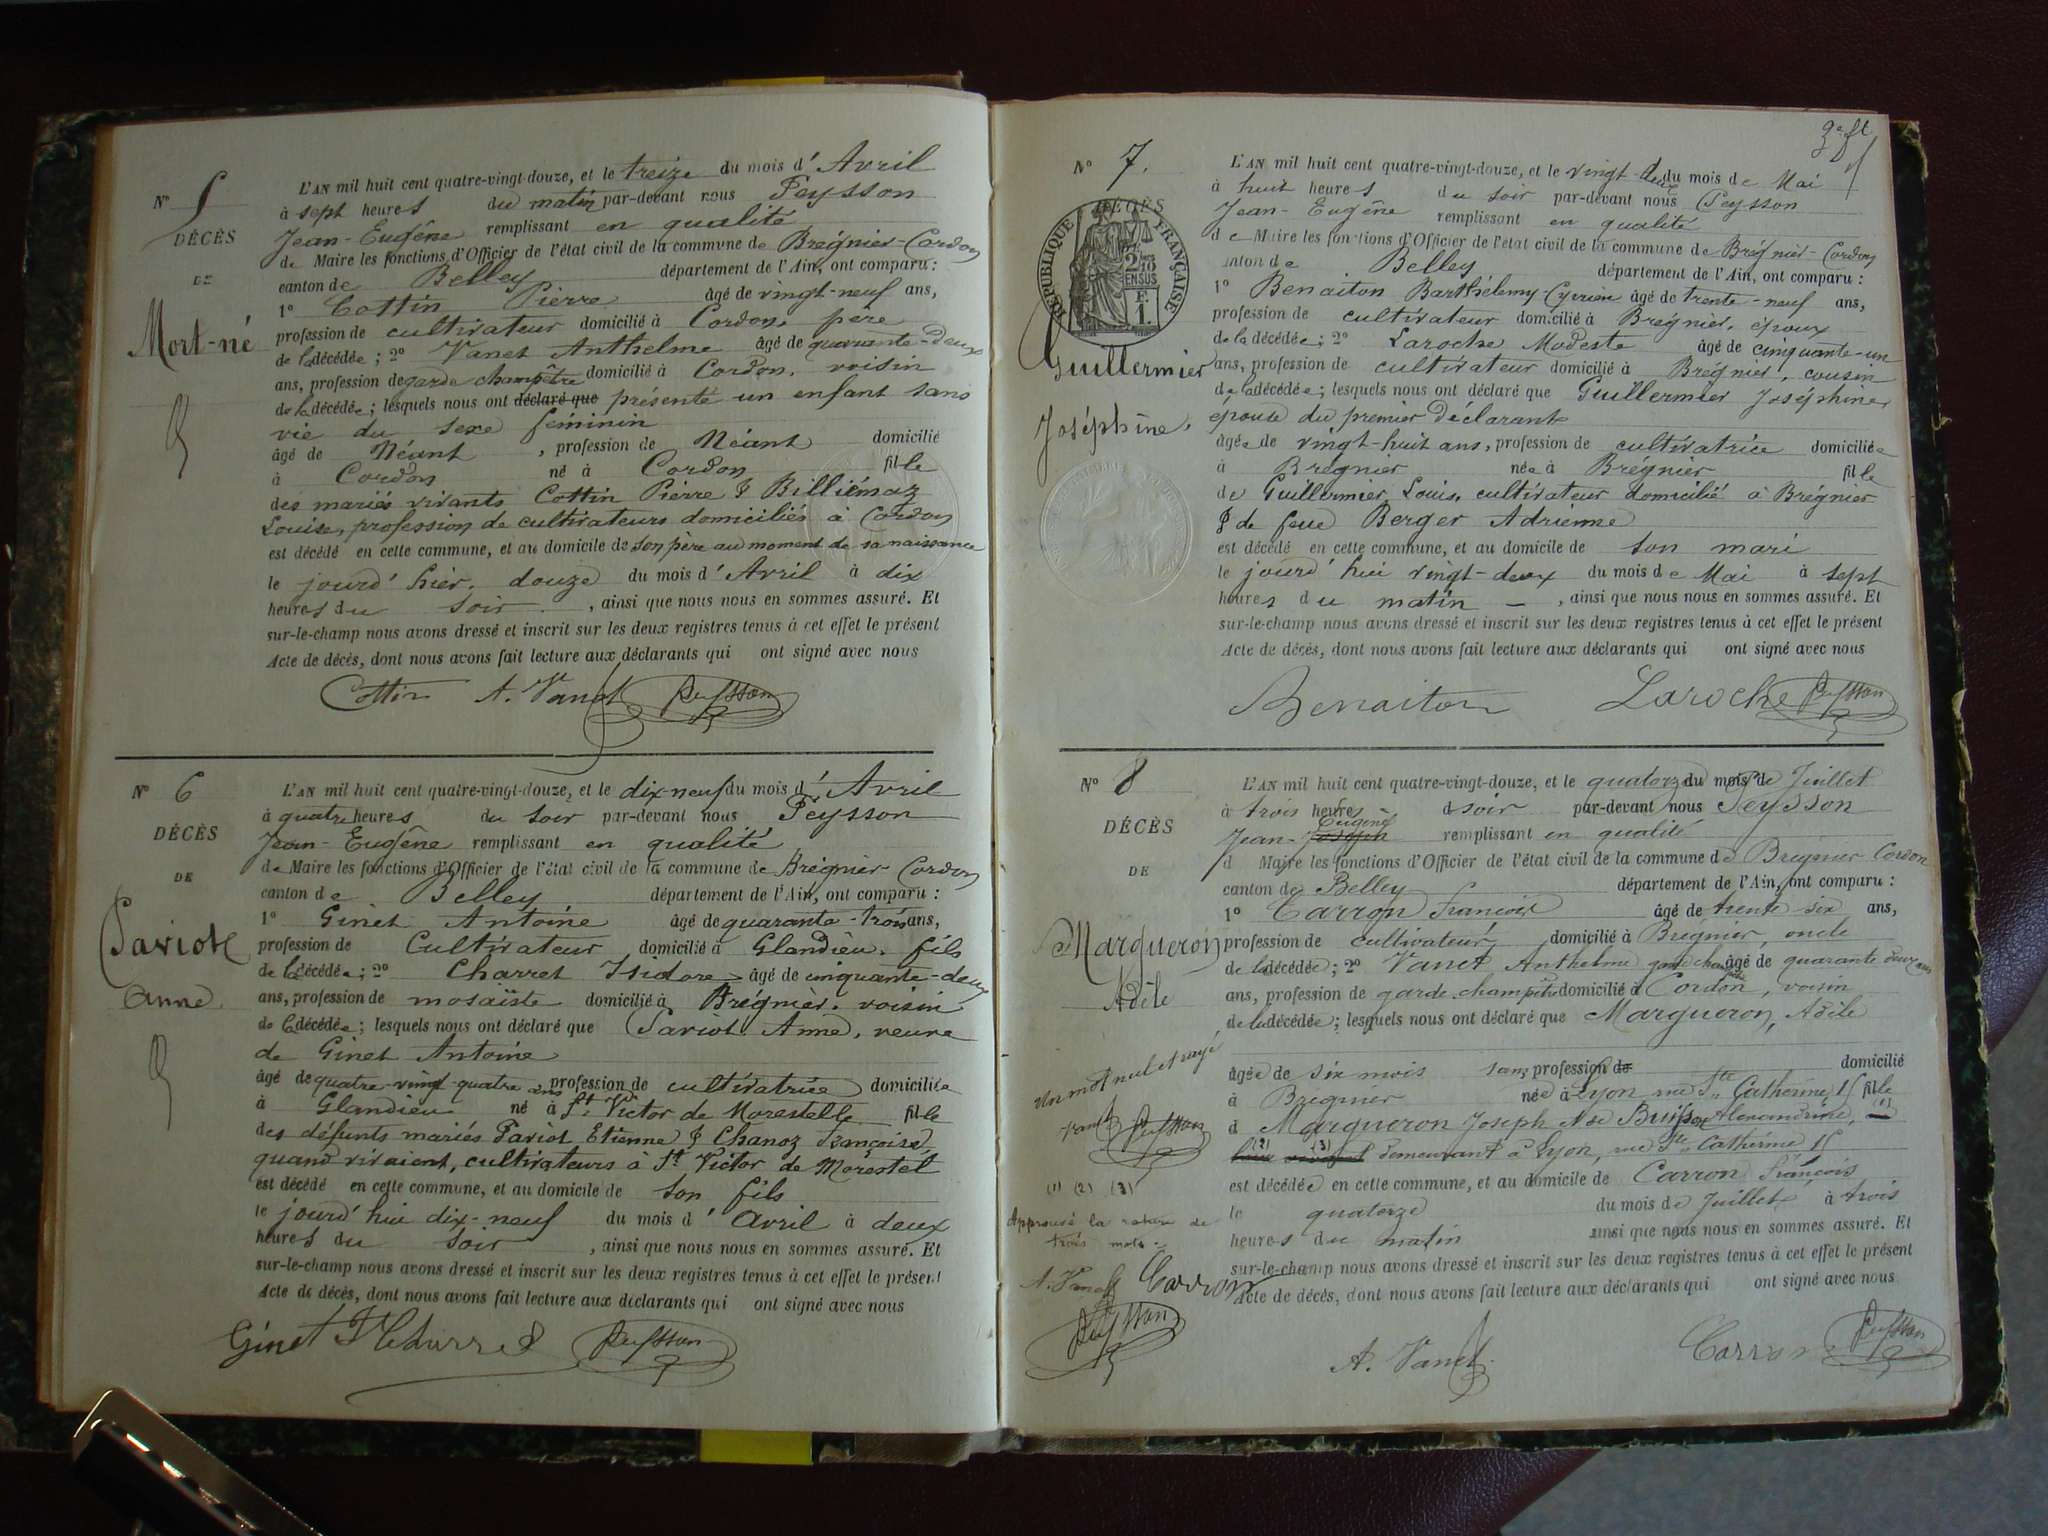 N° 5
DÉCÈS
DE
Mort-né
L'AN mil huit cent quatre-vingt-douze, et le treize du mois d'Avril
à sept heures du matin par-devant nous Peysson
Jean-Eugêne remplissant en qualité
de Maire les fonctions d'Officier de l'état civil de la commune de Brégnier-Cordon
canton de Belley département de l'Ain, ont comparu :
1° Cottin Pierre âgé de vingt-neuf ans,
profession de cultivateur domicilié à Cordon, père
de la décédée ; 2° Vanet Anthelme âgé de quarante-deux
ans, profession de garde champêtre domicilié à Cordon, voisin
de la décédée ; lesquels nous ont déclaré que présenté un enfant sans
vie du sexe féminin
âgé de Néant, profession de Néant domicilié
à Cordon né à Cordon fille
des mariés vivants Cottin Pierre & Billiémaz
Louise, profession de cultivateurs domiciliés à Cordon
est décédé en cette commune, et au domicile de son père au moment de sa naissance
le jourd'hier, douze du mois d'Avril à dix
heures du soir, ainsi que nous nous en sommes assuré. Et
sur-le-champ nous avons dressé et inscrit sur les deux registres tenus à cet effet le présent
Acte de décès, dont nous avons fait lecture aux déclarants qui ont signé avec nous
Cottin A. Vanet Peysson
N° 6
DÉCÈS
DE
Pariot
Anne
L'AN mil huit cent quatre-vingt-douze, et le dix-neuf du mois d'Avril
à quatre heures du soir par-devant nous Peysson
Jean-Eugêne remplissant en qualité
de Maire les fonctions d'Officier de l'état civil de la commune de Brégnier-Cordon
canton de Belley département de l'Ain, ont comparu :
1° Ginet Antoine âgé de quarante-trois ans,
profession de Cultivateur domicilié à Glandieu, fils
de la décédée ; 2° Charret Isidore âgé de cinquante-deux
ans, profession de mosaïste domicilié à Brégnier, voisin
de la décédée ; lesquels nous ont déclaré que Pariot Anne, veuve
de Ginet Antoine
âgé de quatre-vingt-quatre ans profession de cultivatrice domiciliée
à Glandieu né à St Victor de Morestelle fille
des défunts mariés Pariot Etienne & Chanoz Françoise
quand vivaient, cultivateurs à St Victor de Morestel
est décédé en cette commune, et au domicile de son fils
le jourd'hui dix-neuf du mois d'Avril à deux
heures du soir, ainsi que nous nous en sommes assuré. Et
sur-le-champ nous avons dressé et inscrit sur les deux registres tenus à cet effet le présent
Acte de décès, dont nous avons fait lecture aux déclarants qui ont signé avec nous
Ginet Peysson
N° 7.
DÉCÈS
RÉPUBLIQUE FRANÇAISE
2/10 EN SUS
F. 1
Guillermier
Joséphine
L'AN mil huit cent quatre-vingt-douze, et le vingt-deux du mois de Mai
à huit heures du soir par-devant nous Peysson
Jean-Eugêne remplissant en qualité
de Maire les fonctions d'Officier de l'état civil de la commune de Brégnier-Cordon
canton de Belley département de l'Ain, ont comparu :
1° Benaiton Barthélemy-Cyrien âgé de trente-neuf ans,
profession de cultivateur domicilié à Brégnier, époux
de la décédée ; 2° Laroche Modeste âgé de cinquante-un
ans, profession de cultivateur domicilié à Brégnier, cousin
de la décédée ; lesquels nous ont déclaré que Guillermier Joséphine,
épouse du premier déclarant
âgée de vingt-huit ans, profession de cultivatrice domiciliée
à Brégnier née à Brégnier fille
de Guillermier Louis, cultivateur domicilié à Brégnier
& de feue Berger Adrienne
est décédé en cette commune, et au domicile de son mari
le jourd'hui vingt-deux du mois de Mai à sept
heures du matin —, ainsi que nous nous en sommes assuré. Et
sur-le-champ nous avons dressé et inscrit sur les deux registres tenus à cet effet le présent
Acte de décès, dont nous avons fait lecture aux déclarants qui ont signé avec nous
Benaiton Laroche Peysson
N° 8
DÉCÈS
DE
Margueron
Adèle
un mot nul et rayé
Vanet Peysson
(1) (2) (3)
Approuvé la rature de
trois mots
A. Vanet Carron
Peysson
L'AN mil huit cent quatre-vingt-douze, et le quatorze du mois de Juillet
à trois heures d soir par-devant nous Peysson
Jean-Joseph Eugêne remplissant en qualité
d Maire les fonctions d'Officier de l'état civil de la commune de Bregnier Cordon
canton de Belley département de l'Ain, ont comparu :
1° Carron François âgé de trente six ans,
profession de cultivateur domicilié à Bregnier, oncle
de la décédée ; 2° Vanet Anthelme garde champêtre âgé de quarante deux ans
ans, profession de garde champêtre domicilié à Cordon, voisin
de la décédée ; lesquels nous ont déclaré que Margueron, Adèle
âgée de six mois sans profession de domicilié
à Bregnier née à Lyon rue Ste Catherine 15 fille
d Margueron Joseph Alexandrine, (1)
(2) (3) demeurant à Lyon, rue Ste Catherine 15
est décédée en cette commune, et au domicile de Carron François
le quatorze du mois de Juillet à trois
heures du matin ainsi que nous nous en sommes assuré. Et
sur-le-champ nous avons dressé et inscrit sur les deux registres tenus à cet effet le présent
Acte de décès, dont nous avons fait lecture aux déclarants qui ont signé avec nous
A. Vanet Carron Peysson